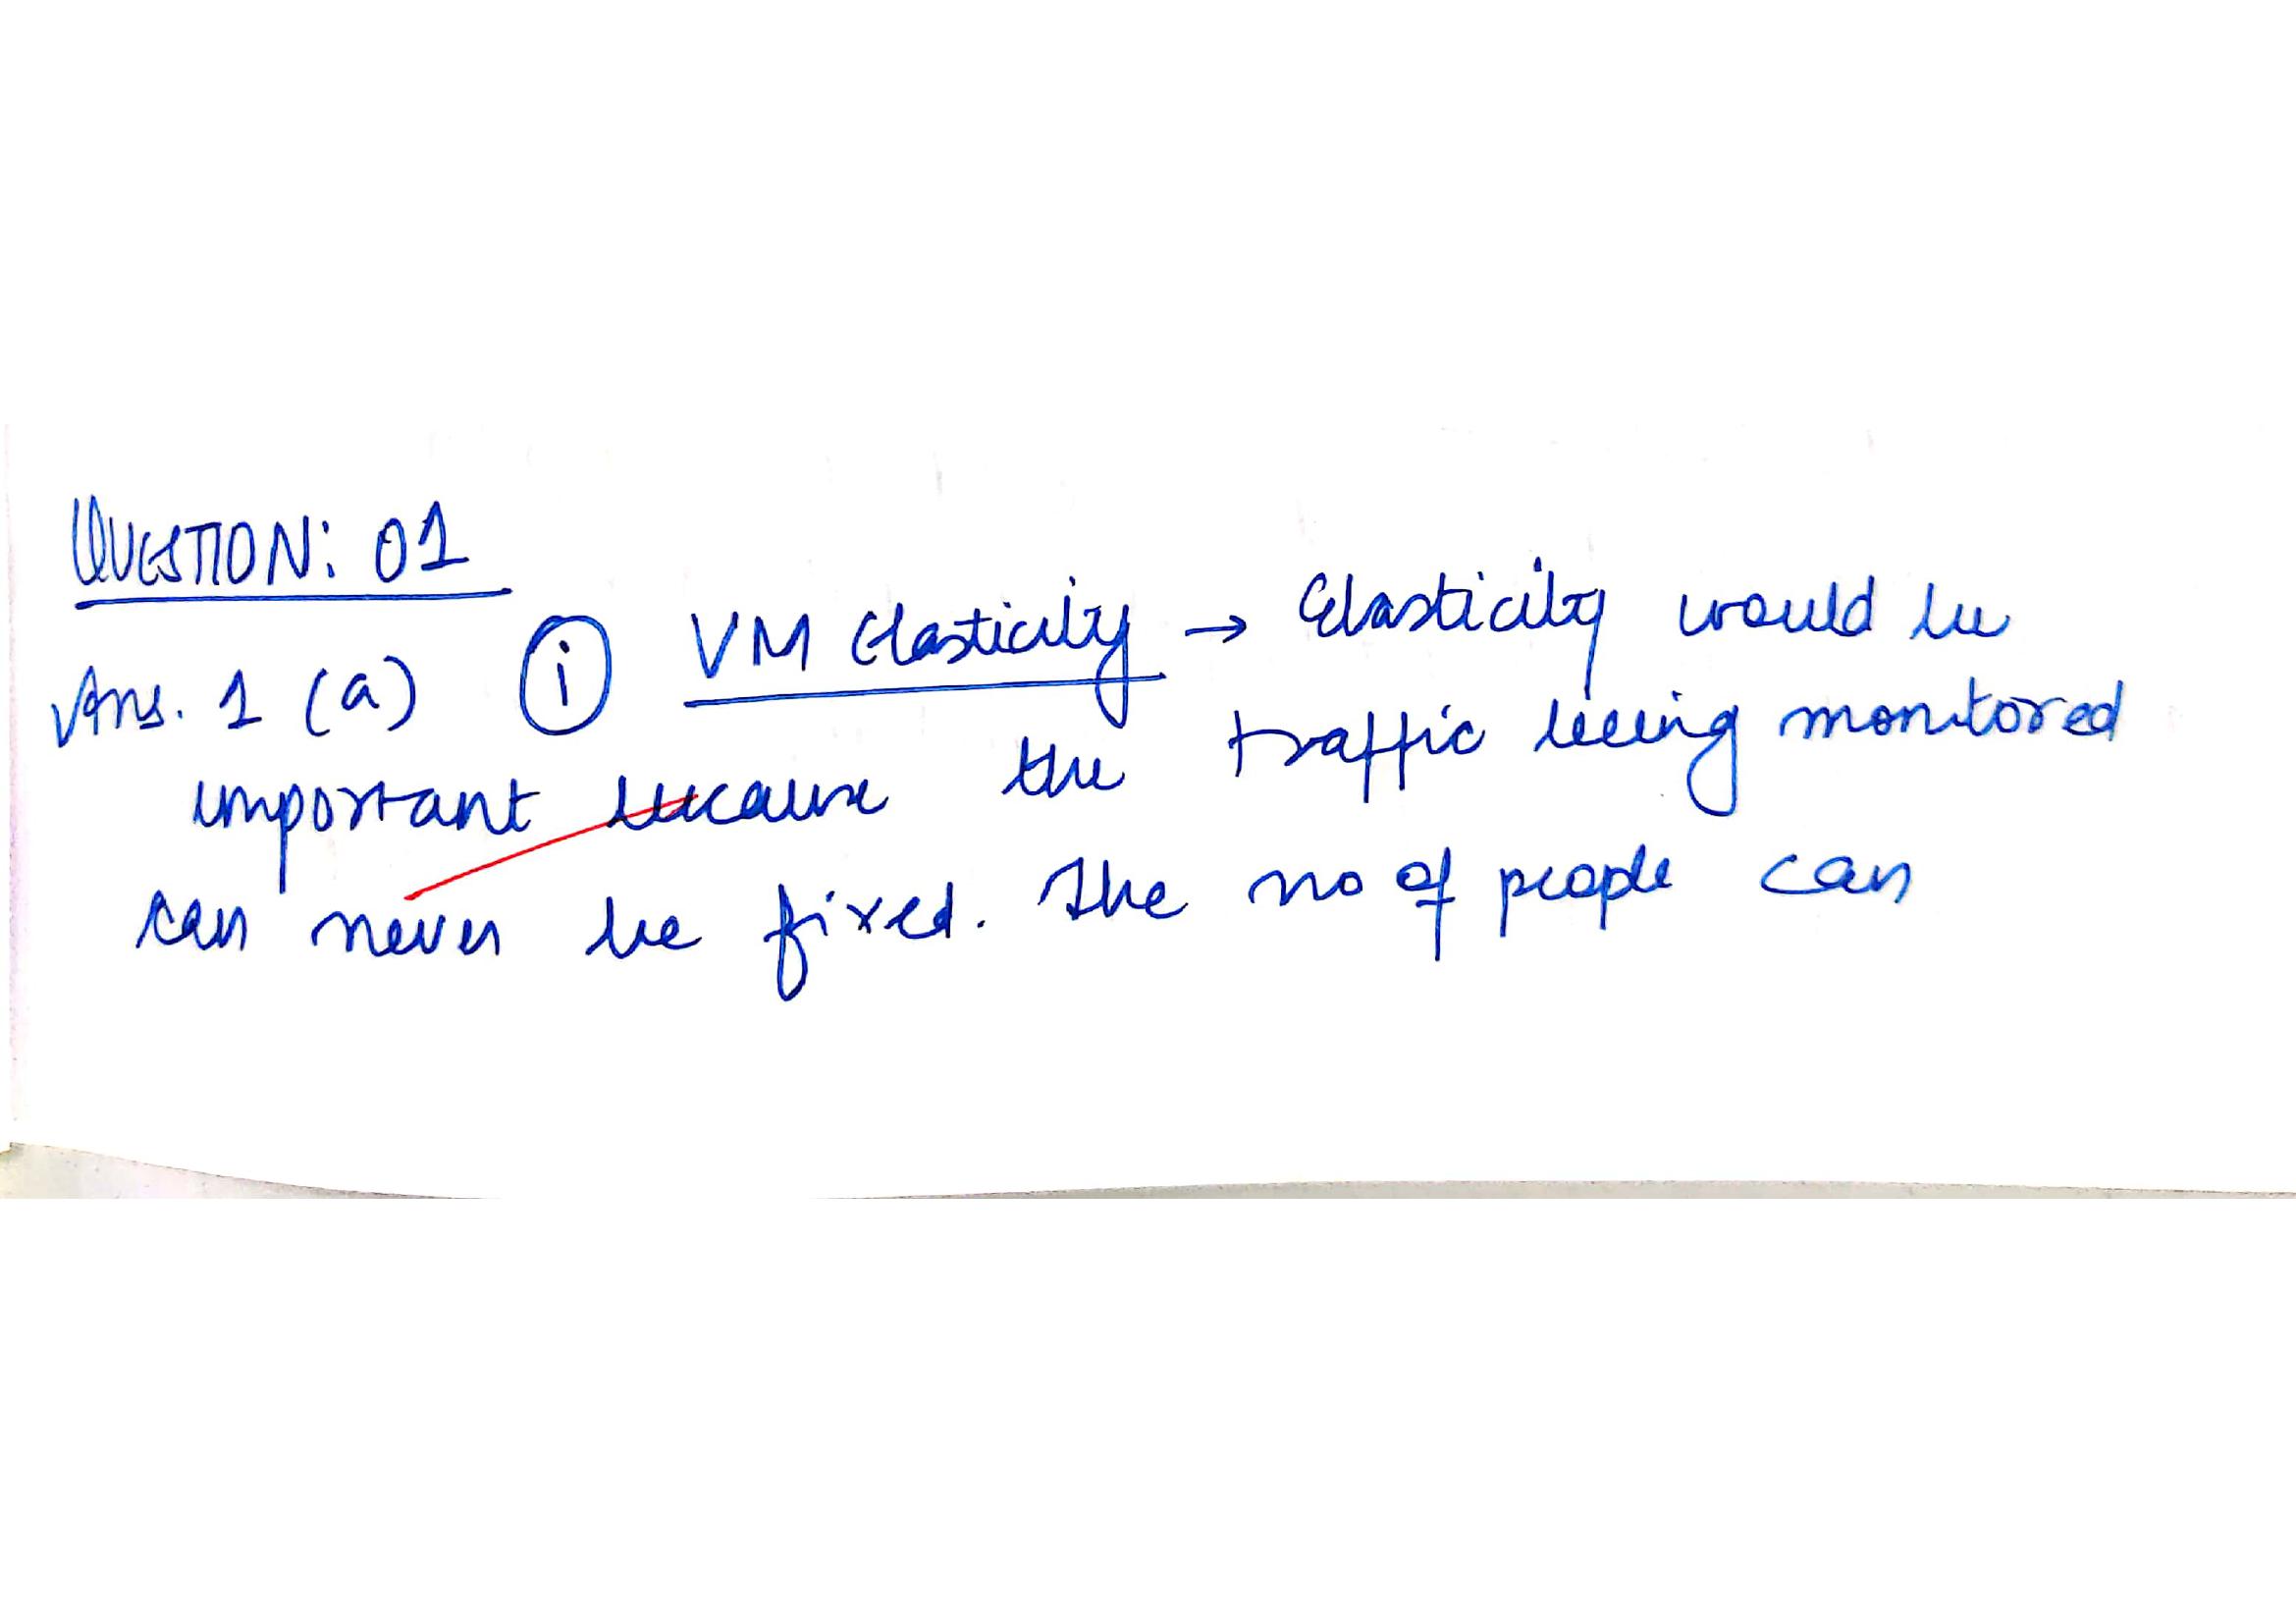 QUESTION: 01
Ans. 1 (a) (i) VM Elasticity → Elasticity would be
important because the traffic being monitored
can never be fixed. The no of people can